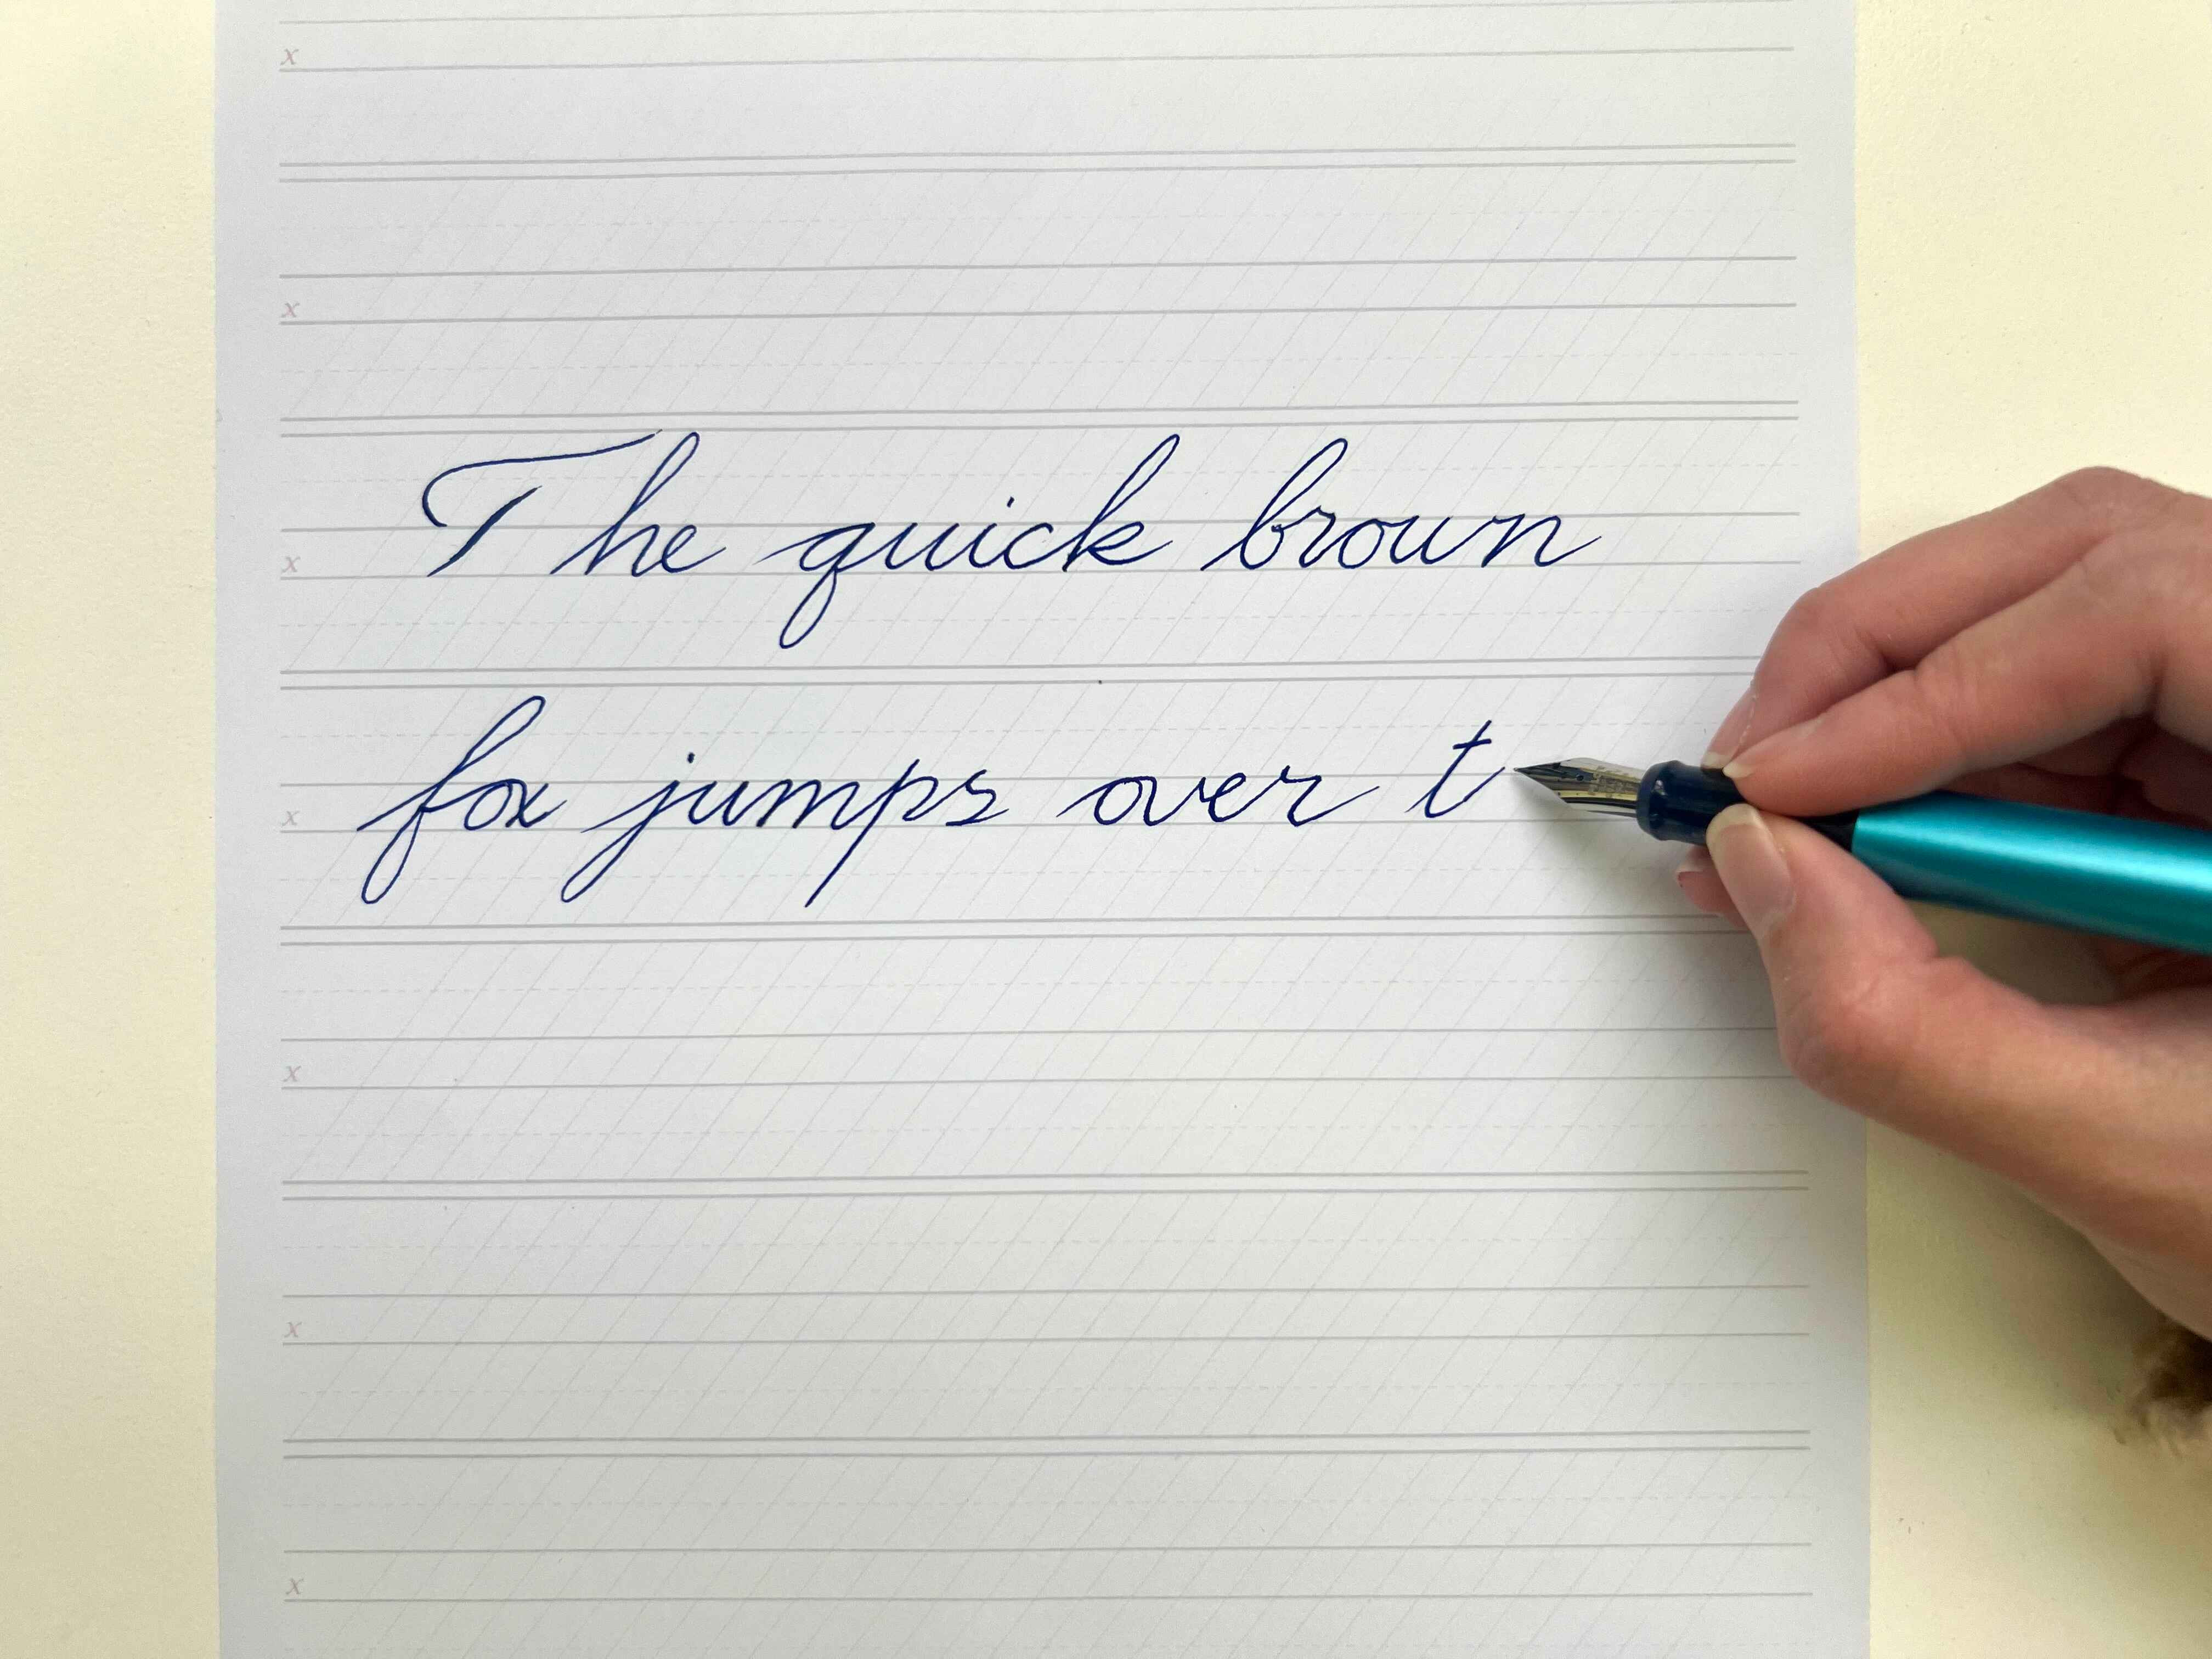 x
x
The quick brown
x
fox jumps over t
x
x
x
x